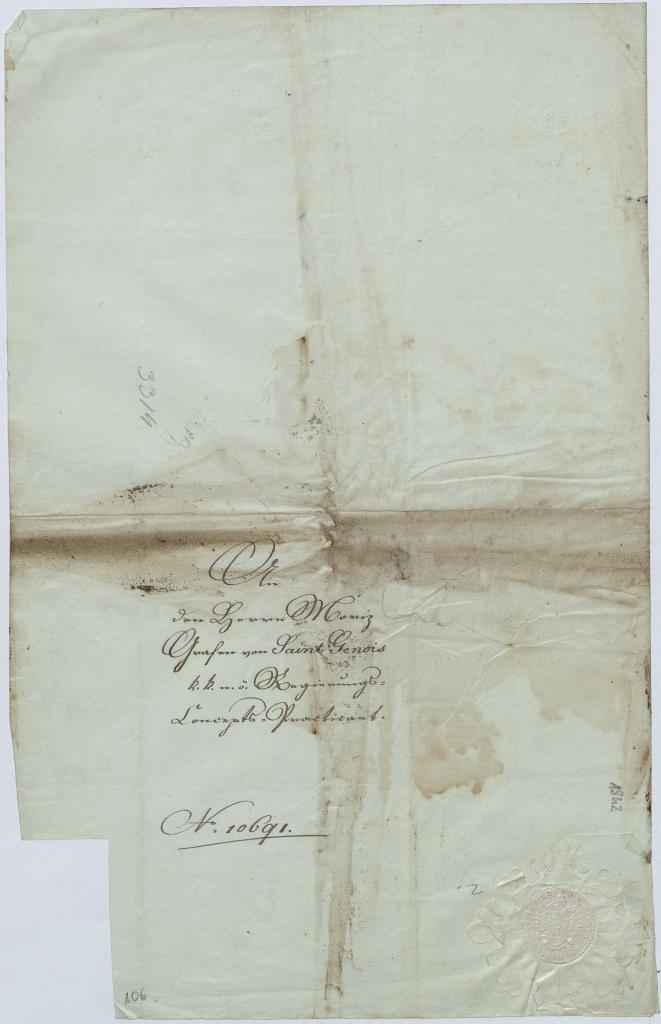 3314
An
den Herrn Moriz
Grafen von Saint Genois
k. k. n. ö. Regierungs-
Concepts-Practicant.
No. 10691.
1842
2
106